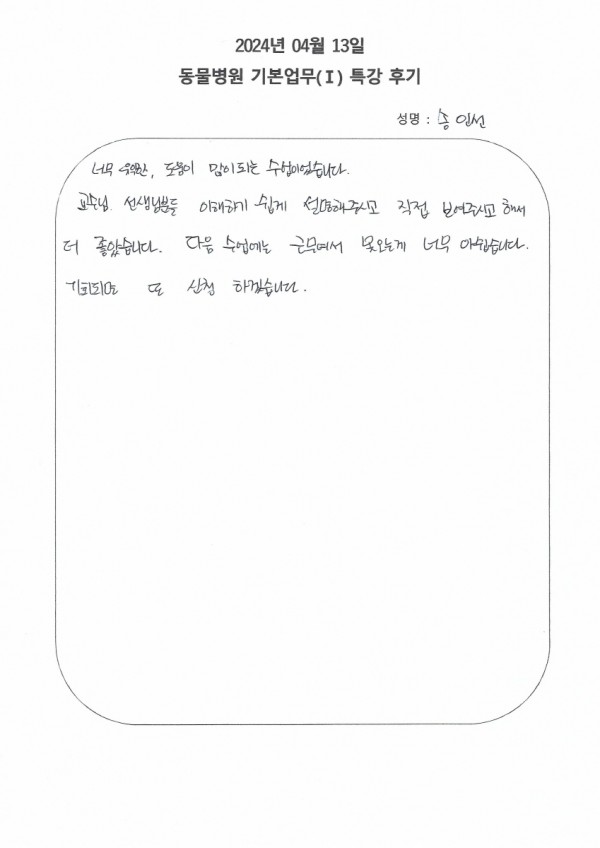 2024년 04월 13일
동물병원 기본업무(I) 특강 후기
성명 : 송인선
너무 유익한, 도움이 많이 되는 수업이었습니다.
교수님, 선생님분들 이해하기 쉽게 설명해주시고 직접 보여주시고 해서
더 좋았습니다. 다음 수업에는 근무여서 못오는게 너무 아쉽습니다.
기회되면 또 신청 하겠습니다.